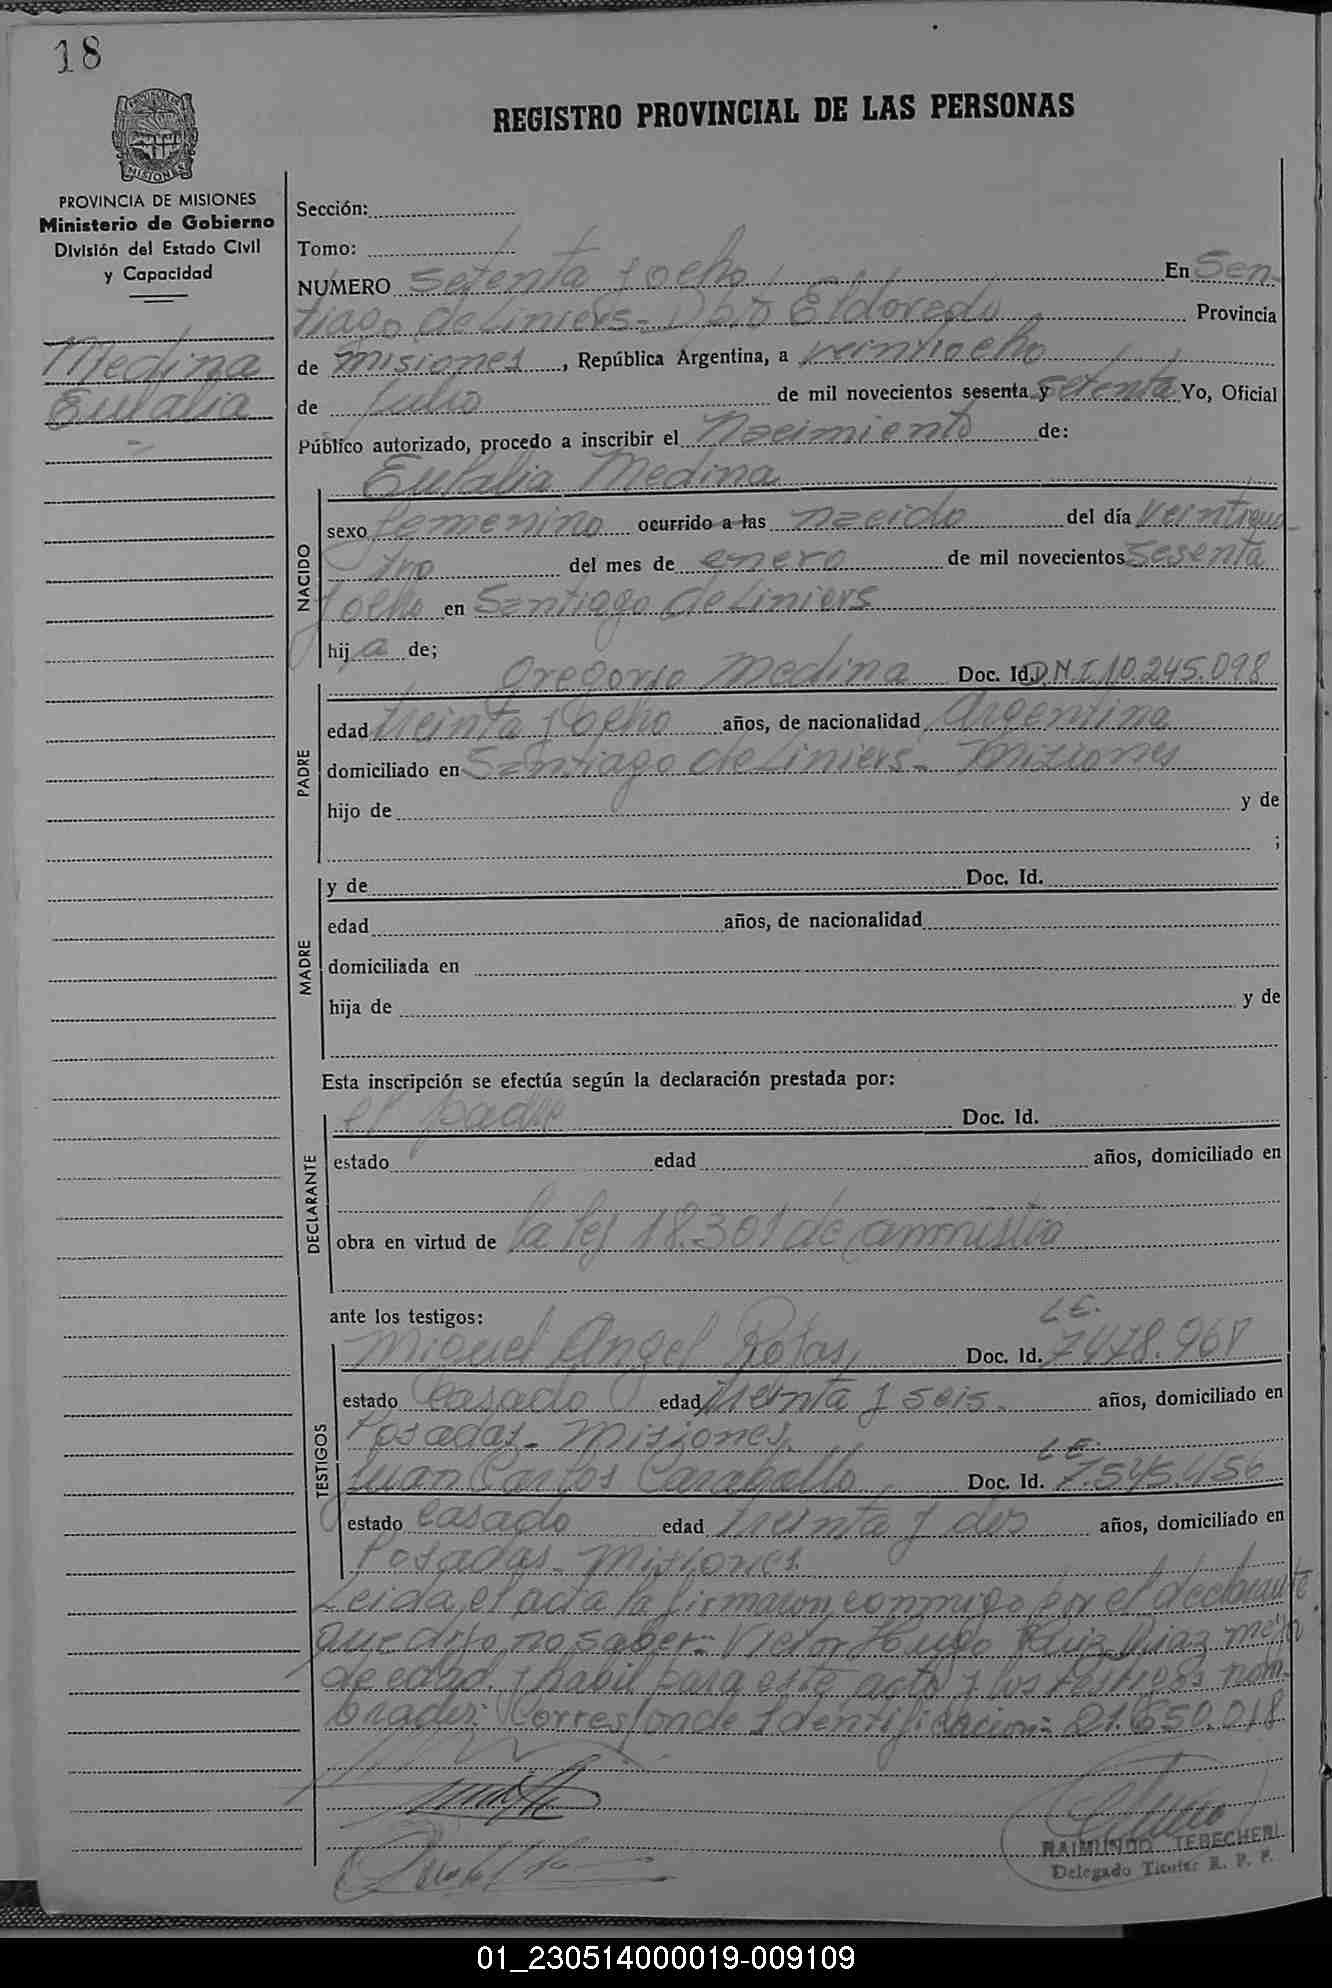 18
REGISTRO PROVINCIAL DE LAS PERSONAS
PROVINCIA DE MISIONES
Ministerio de Gobierno
División del Estado Civil
y Capacidad
Medina
Eulalia
Sección:
Tomo:
NUMERO Setenta y ocho En San-
tiago de Liniers - Dpto Eldorado Provincia
de Misiones, República Argentina, a veintiocho
de Julio de mil novecientos sesenta y setenta Yo, Oficial
Público autorizado, procedo a inscribir el Nacimiento de:
Eulalia Medina
NACIDO
sexo femenino ocurrido a las nacido del día veinticua-
tro del mes de enero de mil novecientos sesenta
y ocho en Santiago de Liniers
hija de;
PADRE
Gregorio Medina Doc. Id. D.N.I. 10.245.098
edad treinta y ocho años, de nacionalidad Argentina
domiciliado en Santiago de Liniers - Misiones
hijo de y de
;
MADRE
y de Doc. Id.
edad años, de nacionalidad
domiciliada en
hija de y de
Esta inscripción se efectúa según la declaración prestada por:
DECLARANTE
el padre Doc. Id.
estado edad años, domiciliado en
obra en virtud de la ley 18.301 de amnistia
ante los testigos:
TESTIGOS
Miguel Angel Rojas, Doc. Id. L.E. 7478.968
estado casado edad treinta y seis. años, domiciliado en
Posadas - Misiones.
Juan Carlos Doc. Id. L.E. 7.545.456
estado casado edad treinta y dos años, domiciliado en
Posadas - Misiones.
Leida el acta la firmaron conmigo por el declarante
que dijo no saber: Victor Hugo Ruiz Diaz mayor
de edad y habil para este acto y los testigos nom-
brados: Corresponde Identificacion: 21.650.018
RAIMUNDO TEBECHERI
Delegado Titular R. P. P.
01_230514000019-009109